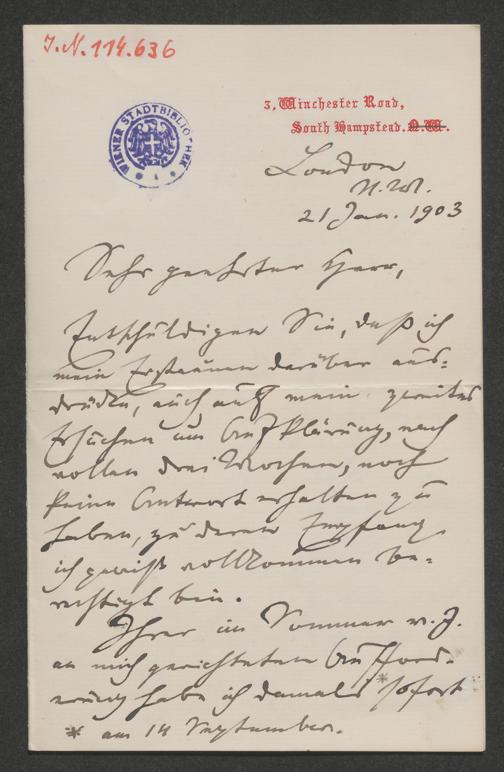 J.N. 114.636
WIENER STADTBIBLIOTHEK
3, Winchester Road,
South Hampstead. N.W.
London
N.W.
21 Jan. 1903
Sehr geehrter Herr,
Entschuldigen Sie, daß ich
mein Erstaunen darüber aus-
drücke, auch auf mein zweites
Ersuchen um Aufklärung, nach
vollen drei Wochen, noch
keine Antwort erhalten zu
haben, zu deren Empfang
ich gewiß vollkommen be-
rechtigt bin.
Ihrer im Sommer v. J.
an mich gerichteten Aufford-
erung habe ich damals * sofort
* am 14 September.